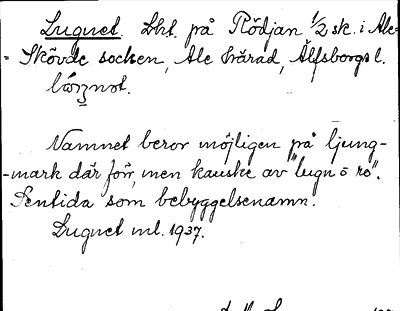 Lugnet. Lht. på Rödjan 1/2 sk. i Ale-
- Skövde socken, Ale härad, Älfsborgs l.
Namnet beror möjligen på ljung-
-mark där förr, men kanske av "lugn o ro".
Sentida som bebyggelsenamn.
Lugnet ml. 1937.